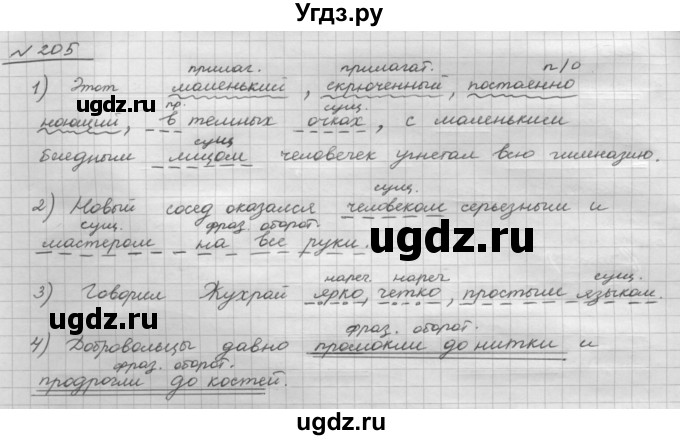 Угдз.ру
№ 205
прилаг. прилагат. п/о
1) Этот маленький, скрюченный, постоянно
пр. сущ.
ноющий, в темных очках, с маленьким
сущ
бледным лицом человечек угнетал всю гимназию.
сущ.
2) Новый сосед оказался человеком серьезным и
сущ. фраз. оборот.
мастером на все руки.
нареч. нареч сущ.
3) Говорил Жухрай ярко, четко, простым языком.
фраз. оборот.
4) Добровольцы давно промокли до нитки и
фраз. оборот.
продрогли до костей.
ugdz.ru
ugdz.ru
ugdz.ru
ugdz.ru
ugdz.ru
Угдз.ру